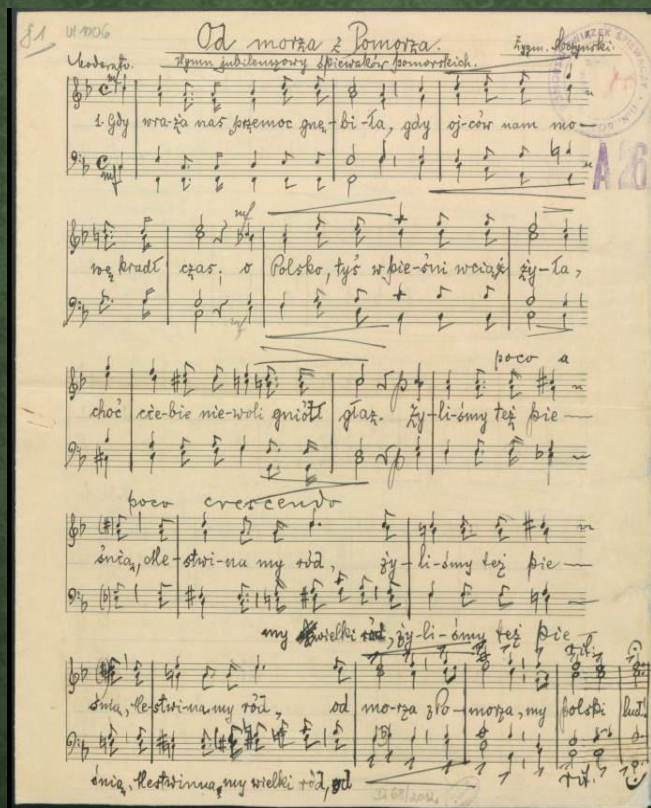 81
VI 1006
Od morza z Pomorza.
Zygm. Moczyński.
Moderato.
Hymn jubileuszowy śpiewaków pomorskich.
A 26
mf
1. Gdy wra-ża nas przemoc gnę-bi-ła, gdy oj-ców nam mo-
mf
mf
wę kradł czas; o Polsko, tyś w pie-śni wciąż ży-ła,
poco a
choć cie-bie nie-woli gniótł głaz. ży-li-śmy też pie-
p
poco crescendo
śnią, Me-stwi-na my ród, ży-li-śmy też pie-
my wielki ród, ży-li-śmy też pie-
rit.
śnią, Me-stwi-na my ród, od mo-rza z Po-morza, my polski lud!
śnią, Mestwinna, my wielki ród, od
rit.